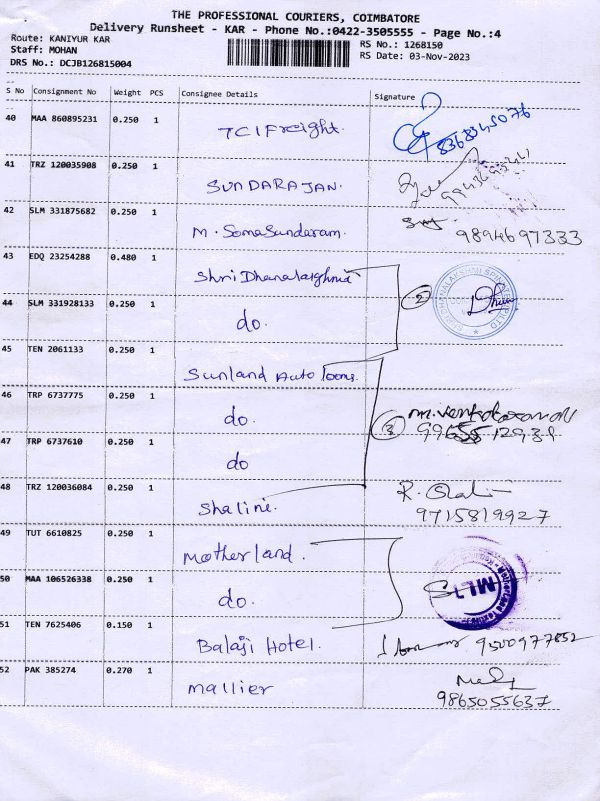 THE PROFESSIONAL COURIERS, COIMBATORE
Delivery Runsheet - KAR - Phone No.:0422-3505555 - Page No.:4
Route: KANIYUR KAR
Staff: MOHAN
DRS No.: DCJB126815004
RS No.: 1268150
RS Date: 03-Nov-2023
S No Consignment No Weight PCS Consignee Details Signature
40 MAA 860895231 0.250 1 TCI Freight. 8368345076
41 TRZ 120035908 0.250 1 SUNDARAJAN.
42 SLM 331875682 0.250 1 M. Somasundaram. 9894697333
43 EDQ 23254288 0.480 1 Shri
44 SLM 331928133 0.250 1 do. 2
45 TEN 2061133 0.250 1 Sunland Auto looms.
46 TRP 6737775 0.250 1 do.
47 TRP 6737610 0.250 1 do 3
48 TRZ 120036084 0.250 1 Shalini. 9715819927
49 TUT 6610825 0.250 1 Motherland.
50 MAA 106526338 0.250 1 do. MLT
51 TEN 7625406 0.150 1 Balaji Hotel. 9500977852
52 PAK 385274 0.270 1 Mallier 9865055637